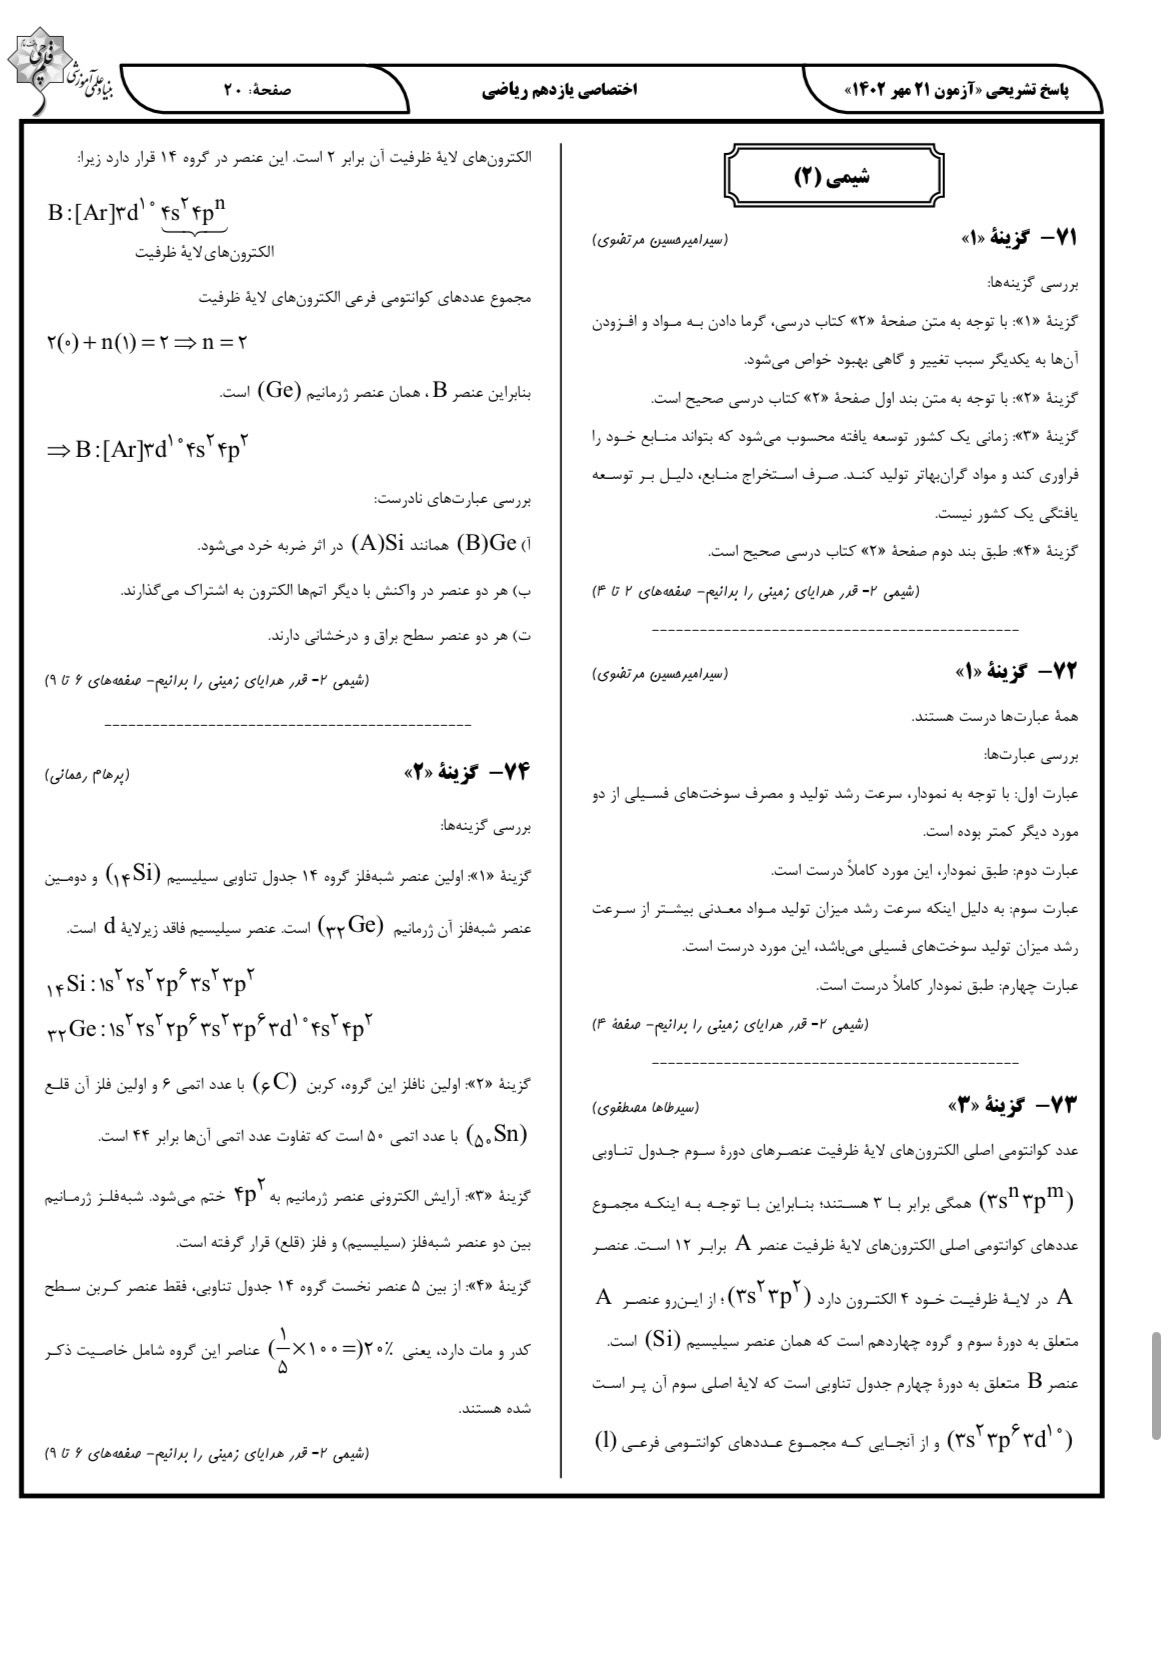 پاسخ تشریحی «آزمون ۲۱ مهر ۱۴۰۲»
اختصاصی یازدهم ریاضی
صفحهٔ: ۲۰
بنیاد علمی آموزشی
قلم‌چی
شیمی (۲)
۷۱- گزینهٔ «۱»
(سیدامیرحسین مرتضوی)
بررسی گزینه‌ها:
گزینهٔ «۱»: با توجه به متن صفحهٔ «۲» کتاب درسی، گرما دادن به مواد و افزودن
آن‌ها به یکدیگر سبب تغییر و گاهی بهبود خواص می‌شود.
گزینهٔ «۲»: با توجه به متن بند اول صفحهٔ «۲» کتاب درسی صحیح است.
گزینهٔ «۳»: زمانی یک کشور توسعه یافته محسوب می‌شود که بتواند منابع خود را
فراوری کند و مواد گران‌بهاتر تولید کند. صرف استخراج منابع، دلیل بر توسعه
یافتگی یک کشور نیست.
گزینهٔ «۴»: طبق بند دوم صفحهٔ «۲» کتاب درسی صحیح است.
(شیمی ۲- قدر هدایای زمینی را بدانیم- صفحه‌های ۲ تا ۴)
۷۲- گزینهٔ «۱»
(سیدامیرحسین مرتضوی)
همهٔ عبارت‌ها درست هستند.
بررسی عبارت‌ها:
عبارت اول: با توجه به نمودار، سرعت رشد تولید و مصرف سوخت‌های فسیلی از دو
مورد دیگر کمتر بوده است.
عبارت دوم: طبق نمودار، این مورد کاملاً درست است.
عبارت سوم: به دلیل اینکه سرعت رشد میزان تولید مواد معدنی بیشتر از سرعت
رشد میزان تولید سوخت‌های فسیلی می‌باشد، این مورد درست است.
عبارت چهارم: طبق نمودار کاملاً درست است.
(شیمی ۲- قدر هدایای زمینی را بدانیم- صفحهٔ ۴)
۷۳- گزینهٔ «۳»
(سیدطاها مصطفوی)
عدد کوانتومی اصلی الکترون‌های لایهٔ ظرفیت عنصرهای دورهٔ سوم جدول تناوبی
(۳sⁿ۳pᵐ) همگی برابر با ۳ هستند؛ بنابراین با توجه به اینکه مجموع
عددهای کوانتومی اصلی الکترون‌های لایهٔ ظرفیت عنصر A برابر ۱۲ است. عنصر
A در لایهٔ ظرفیت خود ۴ الکترون دارد (۳s²۳p²)؛ از این‌رو عنصر A
متعلق به دورهٔ سوم و گروه چهاردهم است که همان عنصر سیلیسیم (Si) است.
عنصر B متعلق به دورهٔ چهارم جدول تناوبی است که لایهٔ اصلی سوم آن پر است
(۳s²۳p⁶۳d¹⁰) و از آنجایی که مجموع عددهای کوانتومی فرعی (l)
الکترون‌های لایهٔ ظرفیت آن برابر ۲ است. این عنصر در گروه ۱۴ قرار دارد زیرا:
B:[Ar]۳d¹⁰۴s²۴pⁿ
الکترون‌های لایهٔ ظرفیت
مجموع عددهای کوانتومی فرعی الکترون‌های لایهٔ ظرفیت
۲(۰)+n(۱)=۲⇒n=۲
بنابراین عنصر B، همان عنصر ژرمانیم (Ge) است.
⇒B:[Ar]۳d¹⁰۴s²۴p²
بررسی عبارت‌های نادرست:
آ) Ge(B) همانند Si(A) در اثر ضربه خرد می‌شود.
ب) هر دو عنصر در واکنش با دیگر اتم‌ها الکترون به اشتراک می‌گذارند.
ت) هر دو عنصر سطح براق و درخشانی دارند.
(شیمی ۲- قدر هدایای زمینی را بدانیم- صفحه‌های ۶ تا ۹)
۷۴- گزینهٔ «۲»
(پرهام رحمانی)
بررسی گزینه‌ها:
گزینهٔ «۱»: اولین عنصر شبه‌فلز گروه ۱۴ جدول تناوبی سیلیسیم (₁₄Si) و دومین
عنصر شبه‌فلز آن ژرمانیم (₃₂Ge) است. عنصر سیلیسیم فاقد زیرلایهٔ d است.
₁₄Si:۱s²۲s²۲p⁶۳s²۳p²
₃₂Ge:۱s²۲s²۲p⁶۳s²۳p⁶۳d¹⁰۴s²۴p²
گزینهٔ «۲»: اولین نافلز این گروه، کربن (₆C) با عدد اتمی ۶ و اولین فلز آن قلع
(₅₀Sn) با عدد اتمی ۵۰ است که تفاوت عدد اتمی آن‌ها برابر ۴۴ است.
گزینهٔ «۳»: آرایش الکترونی عنصر ژرمانیم به ۴p² ختم می‌شود. شبه‌فلز ژرمانیم
بین دو عنصر شبه‌فلز (سیلیسیم) و فلز (قلع) قرار گرفته است.
گزینهٔ «۴»: از بین ۵ عنصر نخست گروه ۱۴ جدول تناوبی، فقط عنصر کربن سطح
کدر و مات دارد، یعنی ۲۰٪(=۱/۵×۱۰۰) عناصر این گروه شامل خاصیت ذکر
شده هستند.
(شیمی ۲- قدر هدایای زمینی را بدانیم- صفحه‌های ۶ تا ۹)